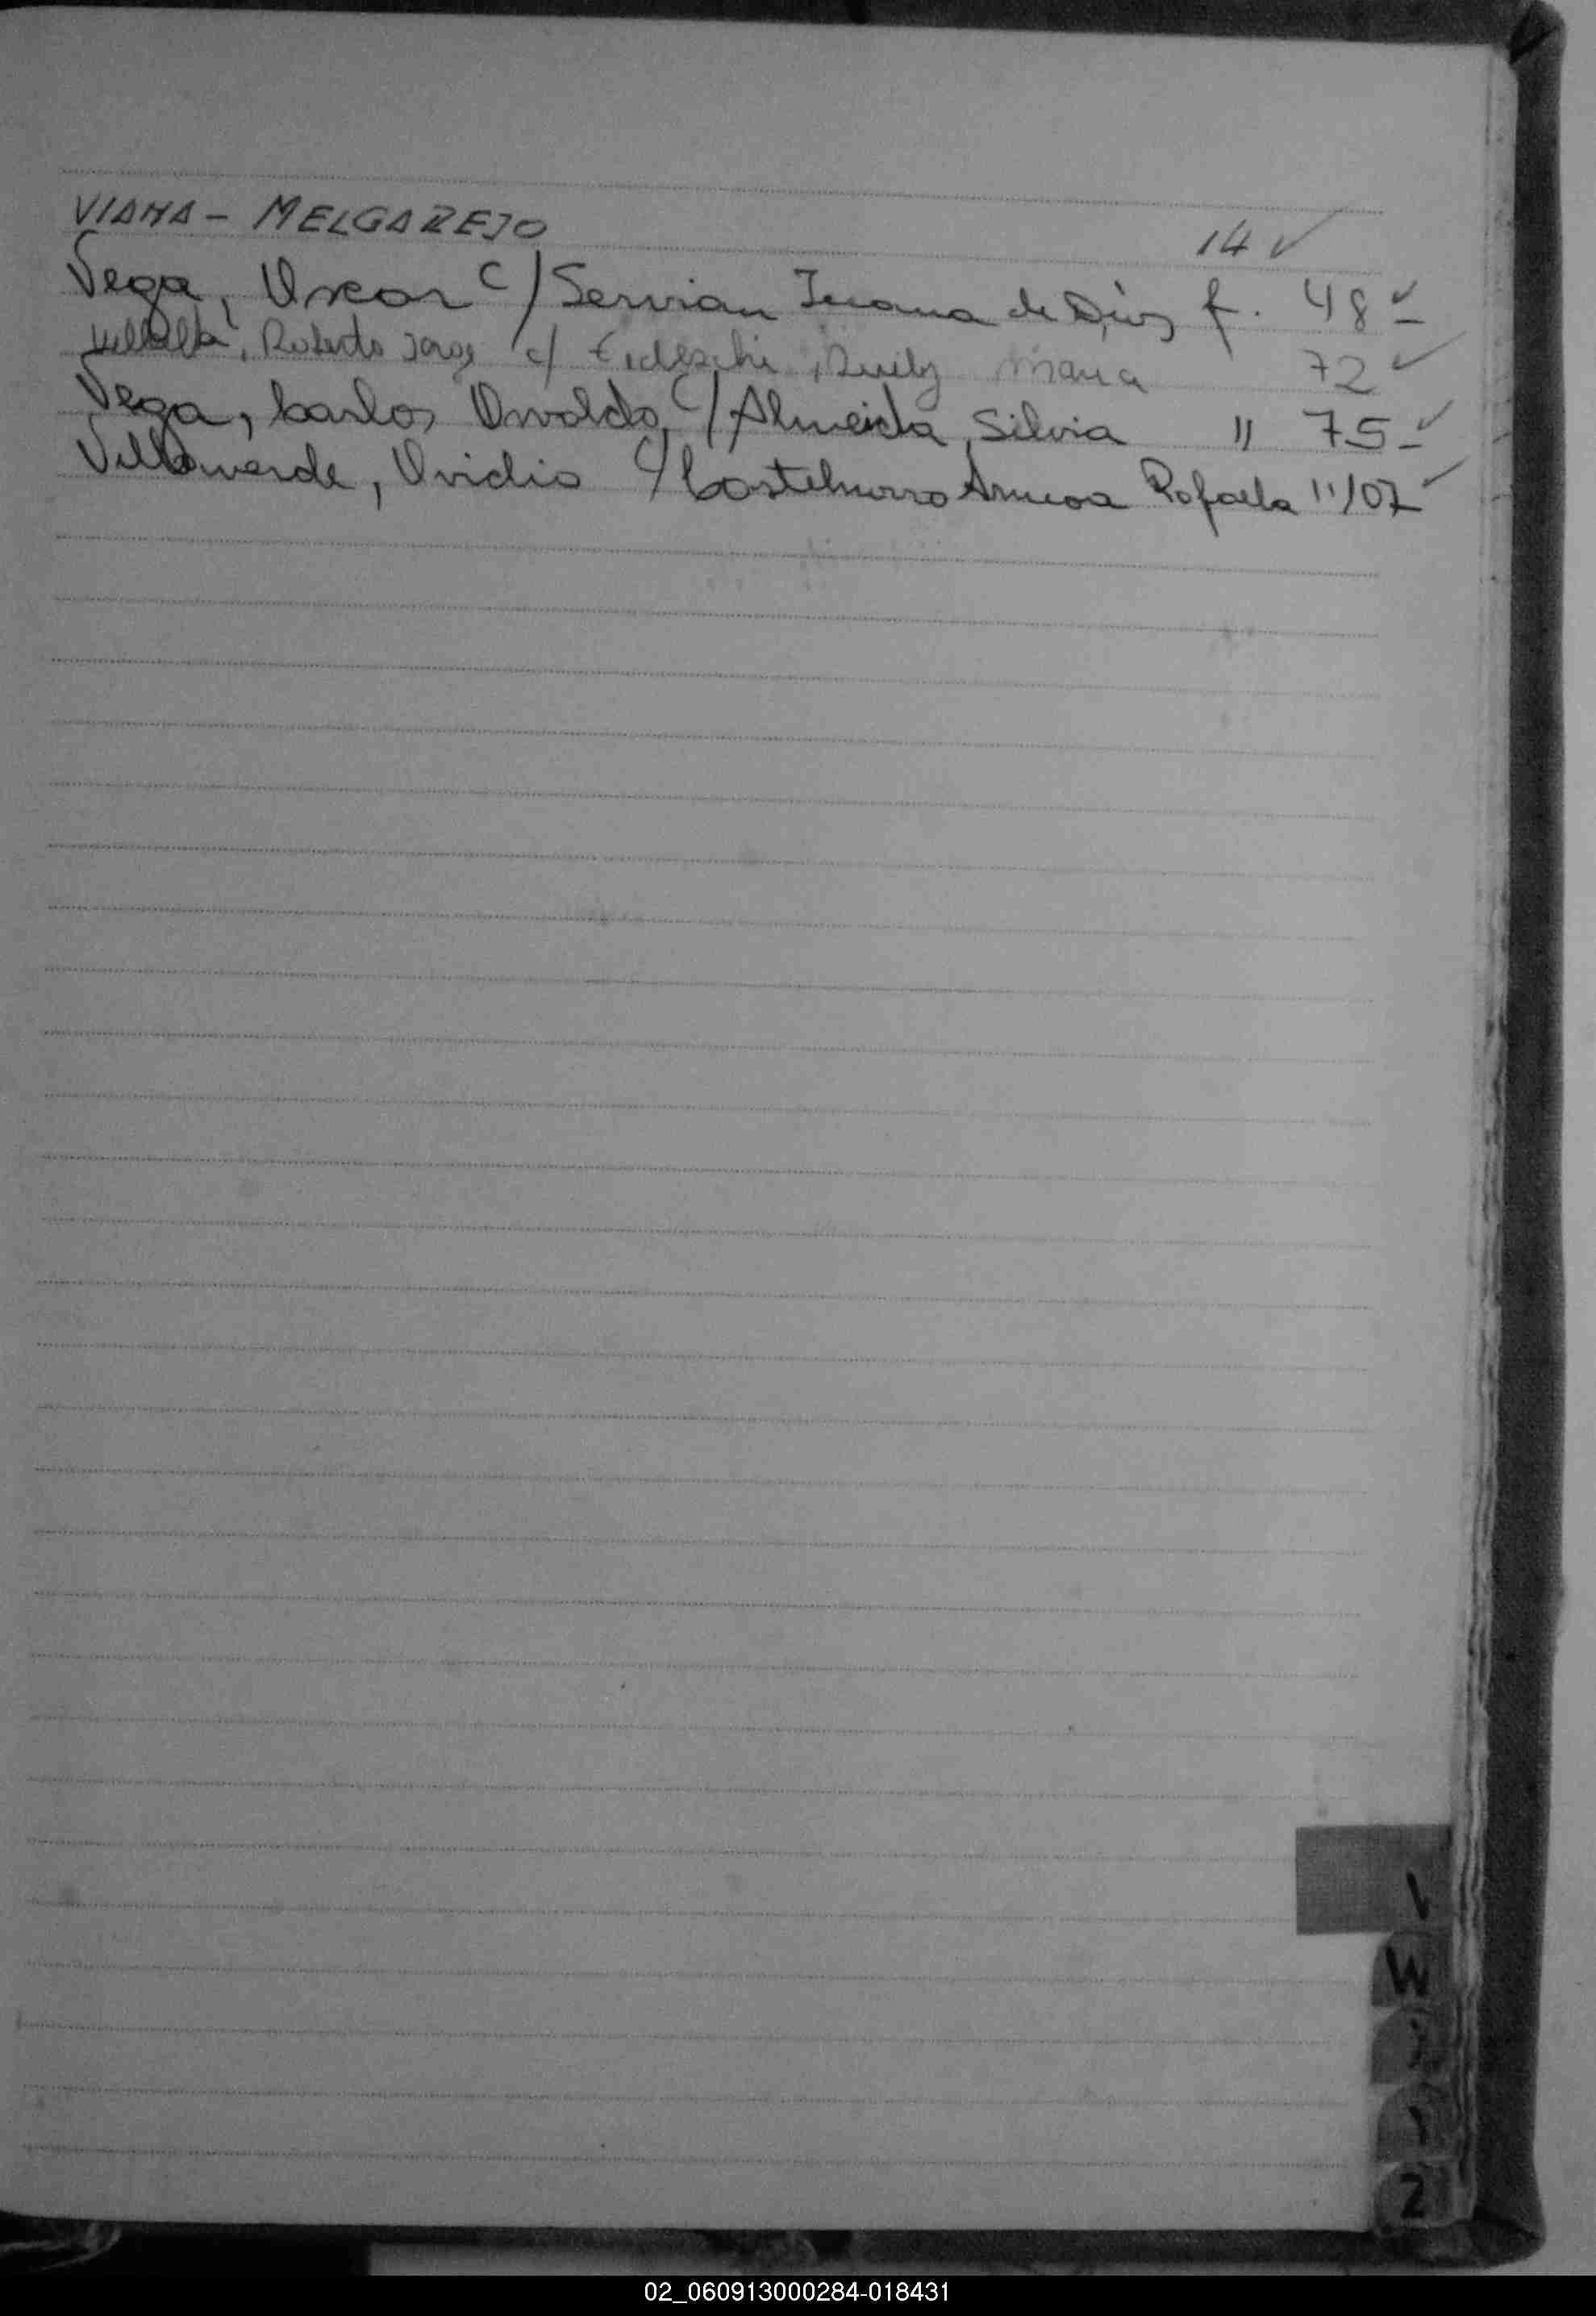 VIANA - MELGAREJO 14 ✓
Vega, Oscar c/ Servian Juana de Dios f. 48 ✓
Villalba, Roberto Jorge c/ Tedeschi, María 72 ✓
Vega, Carlos Osvaldo c/ Almeida, Silvia " 75 ✓
Villaverde, Ovidio c/ Rafaela " 107 ✓
V
W
Z
02_060913000284-018431